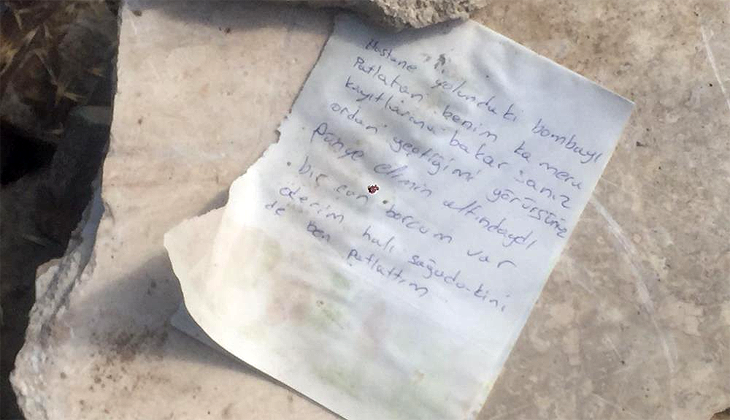 Hastane yolundaki bombayı
Patlatan benim kamera
kayıtlarına bakarsanız
ordan geçtiğimi görürsünüz
Panye elimin altındaydı
bir can borcum var
öderim halı sağadakini
de ben patlattım